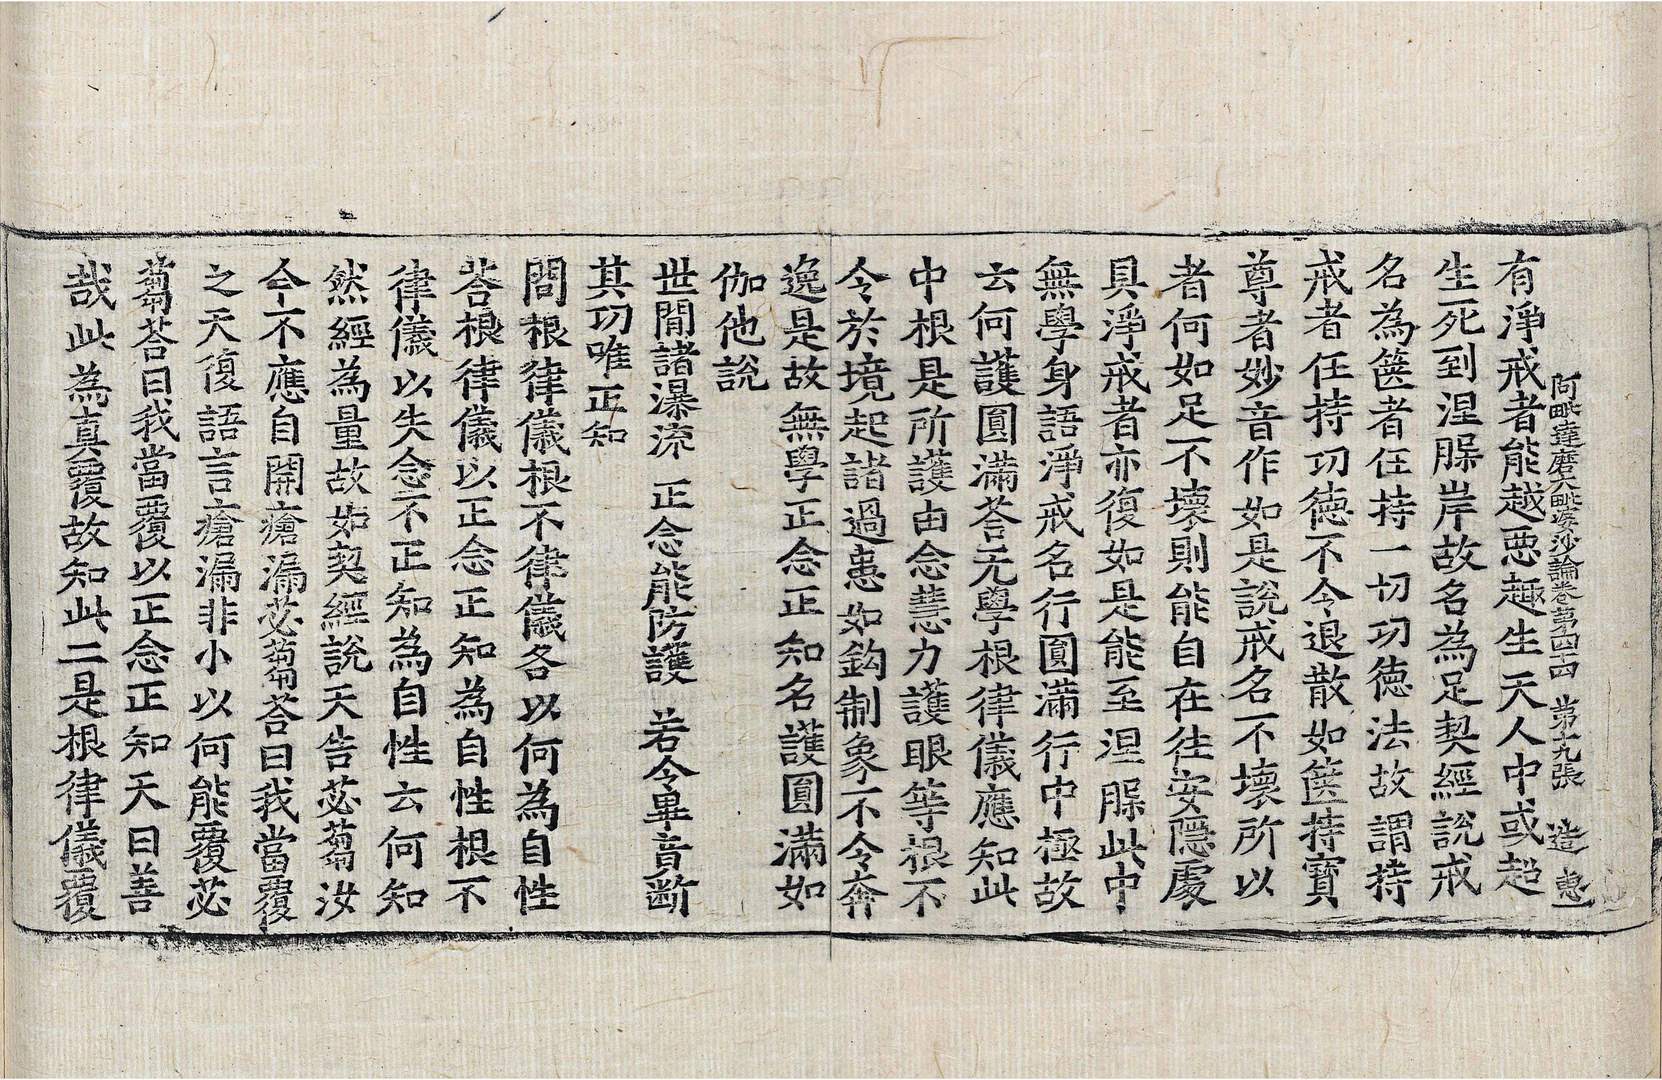 有淨戒者能越悪趣生天人中或超
阿毗達磨大毗婆沙論卷第四十四 第九張 造 惠
生死到涅槃岸故名為足契經說戒
名為篋者任持一切功德法故謂持
戒者任持功德不令退散如篋持寶
尊者妙音作如是說戒名不壞所以
者何如足不壞則能自在往安隱處
具淨戒者亦復如是能至涅槃此中
無學身語淨戒名行圓滿行中極故
云何護圓滿荅无學根律儀應知此
中根是所護由念慧力護眼等根不
令於境起諸過患如鉤制象不令奔
逸是故無學正念正知名護圓滿如
伽他說
世閒諸瀑流 正念能防護 若令畢竟断
其功唯正知
問根律儀根不律儀各以何為自性
荅根律儀以正念正知為自性根不
律儀以失念不正知為自性云何知
然經為量故如契經說天告苾蒭汝
今不應自開瘡漏苾蒭荅曰我當覆
之天復語言瘡漏非小以何能覆苾
蒭荅曰我當覆以正念正知天曰善
哉此為真覆故知此二是根律儀覆